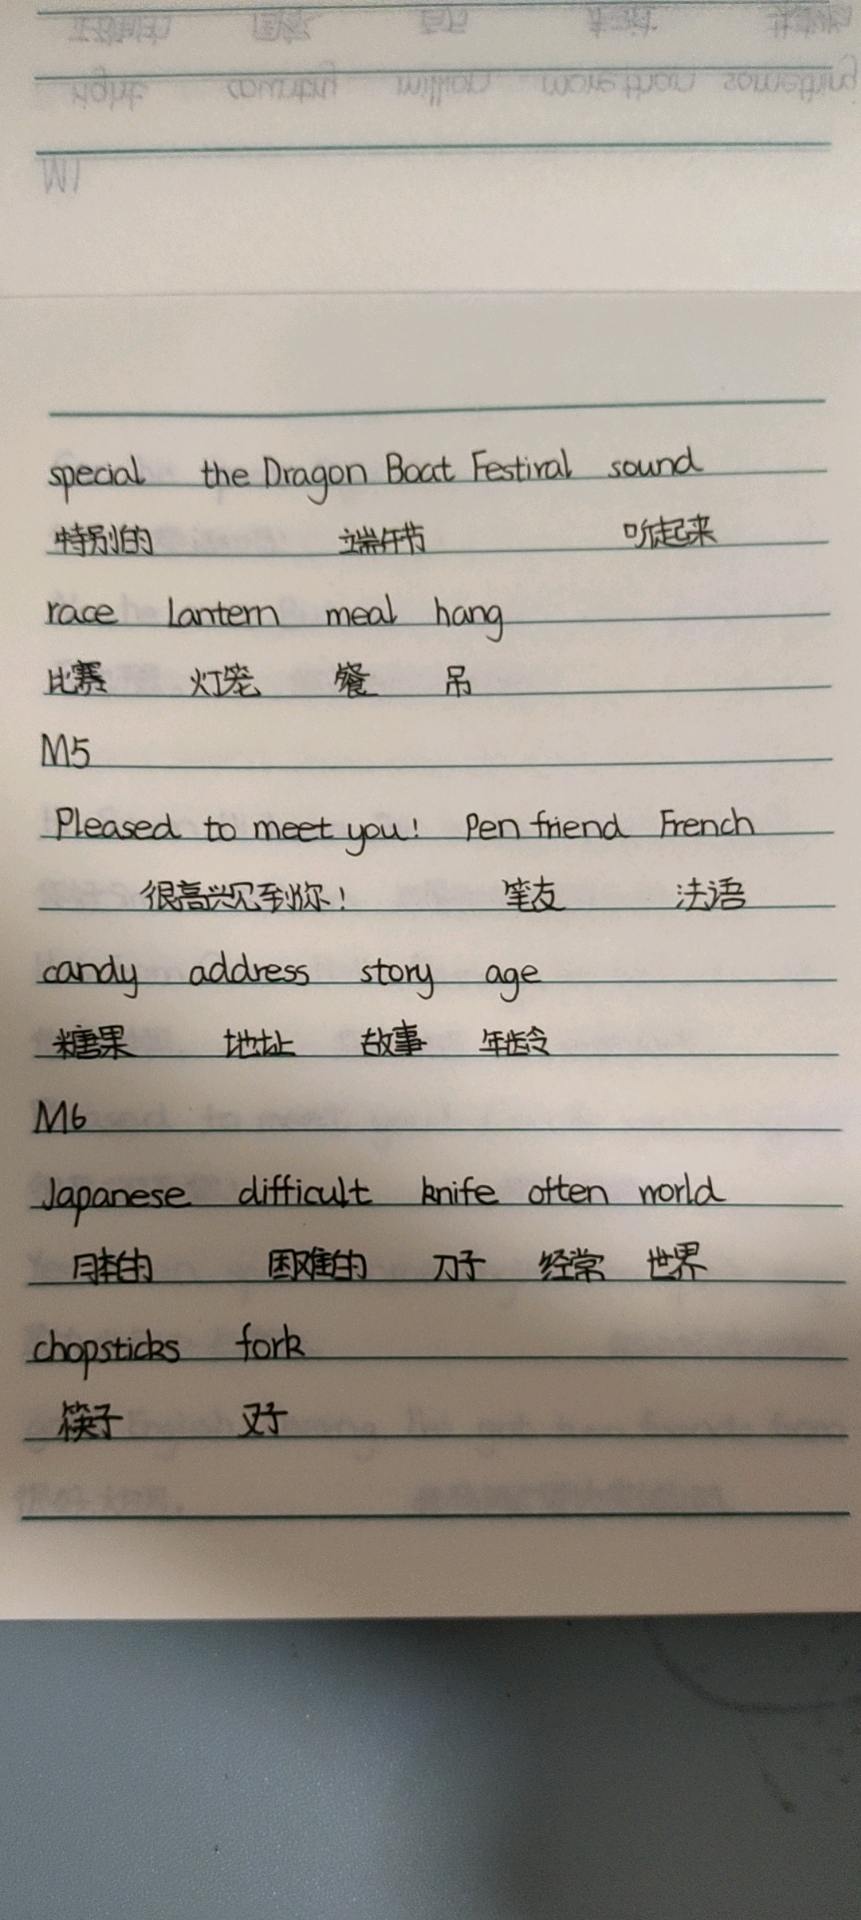 special the Dragon Boat Festival sound
特别的 端午节 听起来
race Lantern meal hang
比赛 灯笼 餐 吊
M5
Pleased to meet you! Pen friend French
很高兴见到你！ 笔友 法语
candy address story age
糖果 地址 故事 年龄
M6
Japanese difficult knife often world
日本的 困难的 刀子 经常 世界
chopsticks fork
筷子 叉子